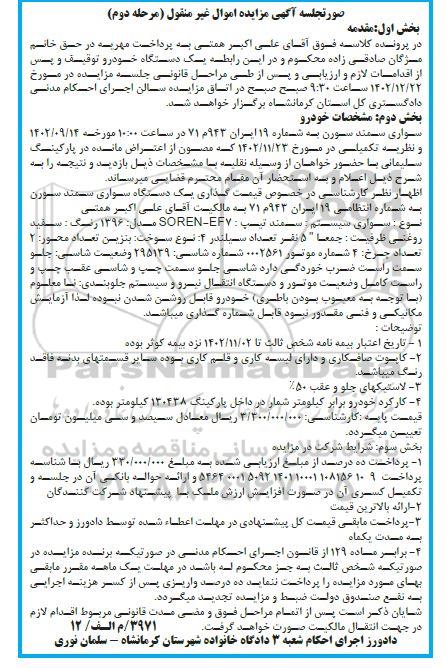 صورتجلسه آگهی مزایده اموال غیر منقول (مرحله دوم)
بخش اول:مقدمه
در پرونده کلاسه فوق آقای علی اکبر همتی به پرداخت مهریه در حق خانم
مژگان صادقی زاده محکوم و در این رابطه یک دستگاه خودرو توقیف و پس
از اقدامات لازم و ارزیابی و پس از طی مراحل قانونی جلسه مزایده در مورخ
۱۴۰۲/۱۲/۲۲ ساعت ۹:۳۰ صبح صبح در اتاق مزایده سالن اجرای احکام مدنی
دادگستری کل استان کرمانشاه برگزار خواهد شد.
بخش دوم: مشخصات خودرو
سواری سمند سورن به شماره ۱۹ ایران ۹۴۳م ۷۱ در ساعت ۱۰:۰۰ مورخه ۱۴۰۲/۰۹/۱۴
و نظریه تکمیلی در مورخ ۱۴۰۲/۱۱/۲۳ که مصون از اعتراض مانده در پارکینگ
سلیمانی با حضور خواهان از وسیله نقلیه با مشخصات ذیل بازدید و نتیجه را به
شرح ذیل اعلام و به استحضار آن مقام محترم قضایی میرساند.
اظهار نظر کارشناسی در خصوص قیمت گذاری یک دستگاه سواری سمند سورن
به شماره انتظامی ۱۹ ایران ۹۴۳م ۷۱ به مالکیت آقای علی اکبر همتی
نوع : سواری سیستم : سمند تیپ : SOREN-EF7 مدل: ۱۳۹۶ رنگ : سفید
روغنی ظرفیت : جمعا " ۵ نفر تعداد سیلندر ۴: نوع سوخت: بنزین تعداد محور: ۲
تعداد چرخ: ۴ شماره موتور ۰۰۰۲۵۶۱ شماره شاسی: ۲۹۵۱۳۹ وضعیت شاسی: جلو
سمت راست ضرب خوردگی دارد شاسی جلو سمت چپ و شاسی عقب چپ و
راست کامل وضعیت موتور و دستگاه انتقال نیرو و سیستم جلوبندی: نا معلوم
(با توجه به معیوب بودن باطری) خودرو قابل روشن شدن نبوده لذا آزمایش
مکانیکی و فنی مقدور نبود قابل شماره گذاری میباشد.
توضیحات :
۱- تاریخ اعتبار بیمه نامه شخص ثالث تا ۱۴۰۲/۱۱/۰۲ نزد بیمه کوثر بوده
۲- کاپوت صافکاری و دارای لیسه کاری و قلم کاری بوده سایر قسمتهای بدنه فاقد
رنگ میباشد.
۳- لاستیکهای جلو و عقب ۵۰٪
۴- کارکرد خودرو برابر کیلومتر شمار در داخل پارکینگ ۱۳۰۴۳۸ کیلومتر بوده.
قیمت پایه :کارشناسی: ۳/۳۰۰/۰۰۰/۰۰۰ ریال معادل سیصد و سی میلیون تومان
تعیین میگردد.
بخش سوم: شرایط شرکت در مزایده
۱- پرداخت ده درصد از مبلغ ارزیابی شده به مبلغ ۳۳۰/۰۰۰/۰۰۰ ریال با شناسه
پرداخت و ارائه حواله بانکی آن در جلسه و
تکمیل کسری آن در صورت افزایش ارزش ملک با پیشنهاد شرکت کنندگان
۲-ارائه بالاترین قیمت
۳-پرداخت مابقی قیمت کل پیشنهادی در مهلت اعطاء شده توسط دادورز و حداکثر
به مدت یکماه
۴- برابر ماده ۱۲۹ از قانون اجرای احکام مدنی در صورتیکه برنده مزایده در
صورتیکه شخص ثالث به جز محکوم له باشد در مهلت یک ماهه مقرر مابقی
بهای مورد مزایده را پرداخت ننماید ده درصد واریزی پس از کسر هزینه اجرایی
به نفع صندوق دولت ضبط و مزایده تجدید میگردد.
شایان ذکر است پس از اتمام مراحل فوق و مضی مدت قانونی مربوط اقدام لازم
در جهت انتقال مالکیت صورت خواهد گرفت. ۳۹۷۱/م الف/ ۱۲
دادورز اجرای احکام شعبه ۳ دادگاه خانواده شهرستان کرمانشاه – سلمان نوری